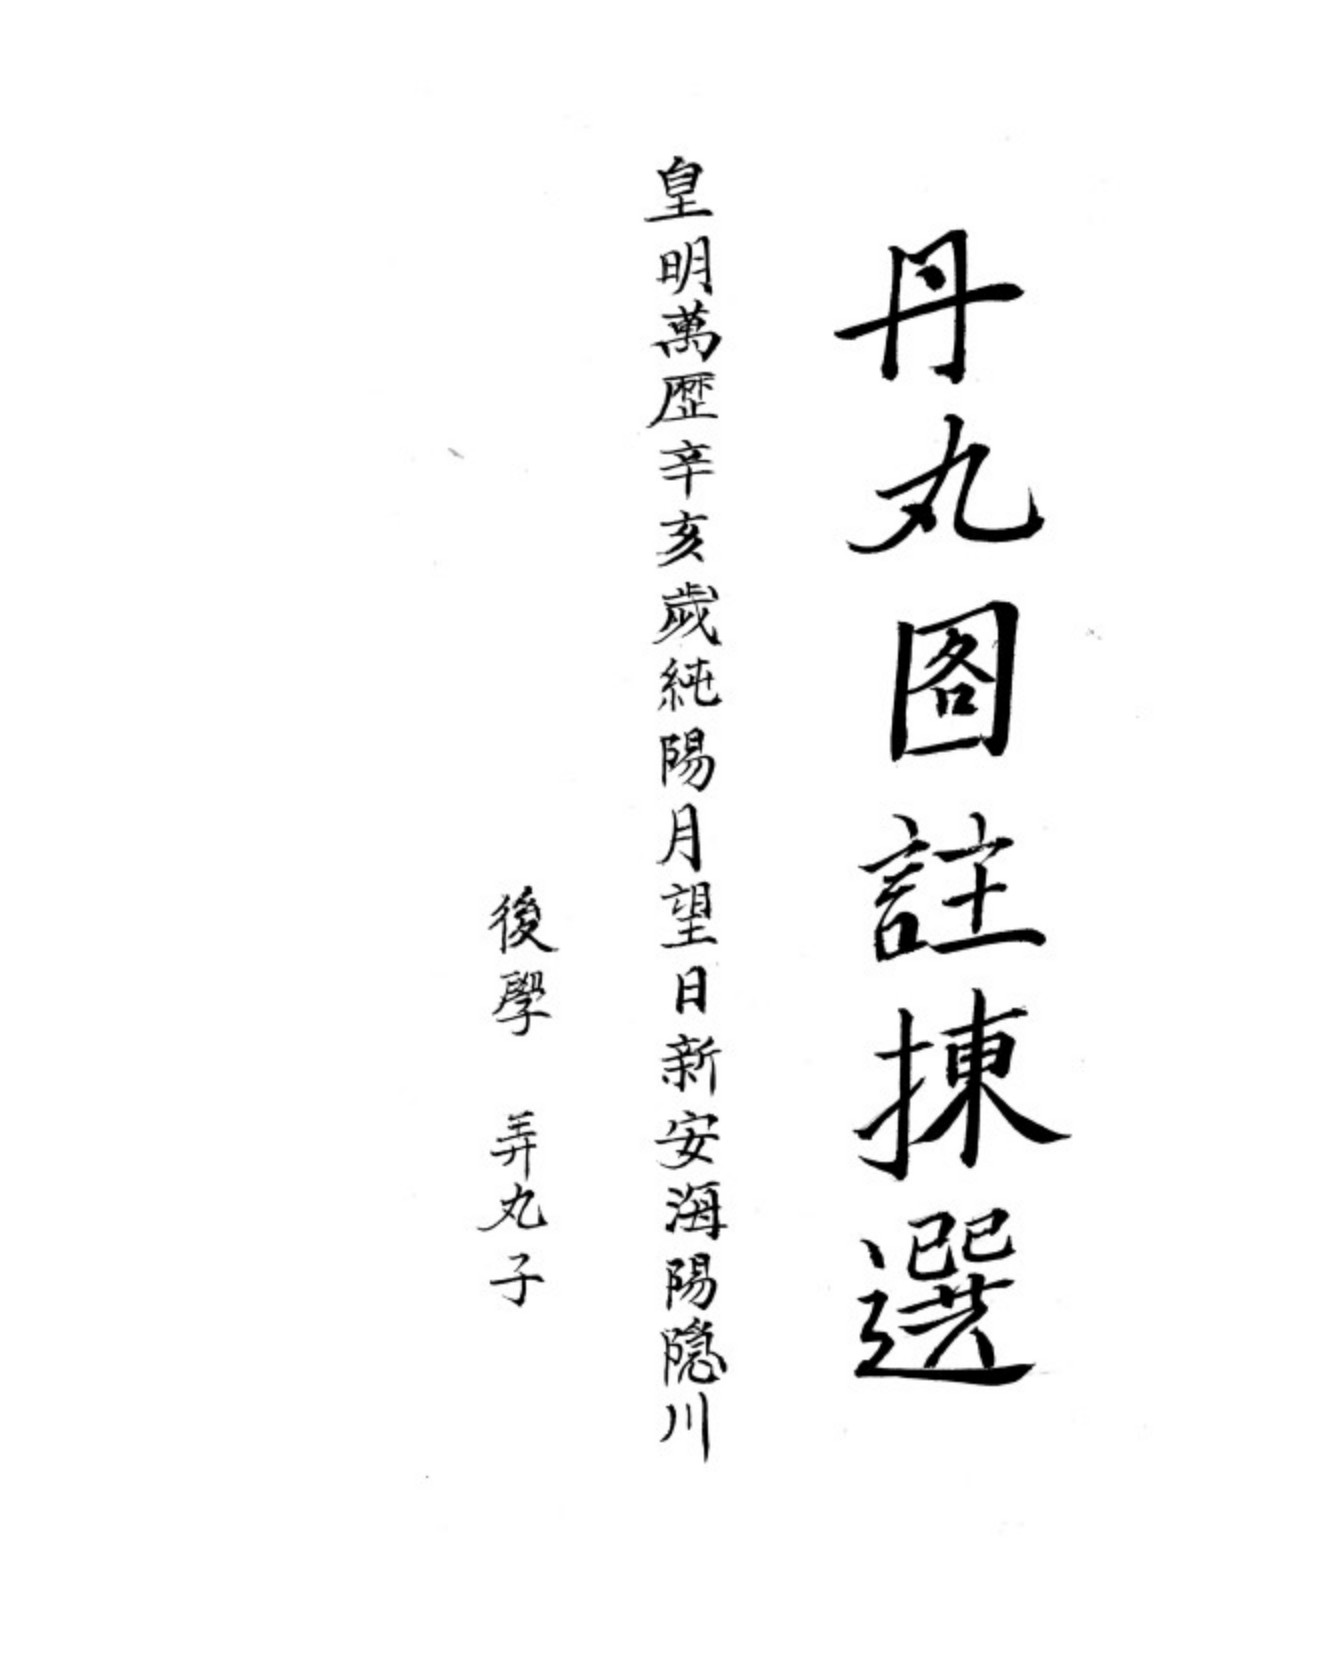 丹丸图註揀選
皇明萬歷辛亥歲純陽月望日新安海陽隱川
後學 弄丸子